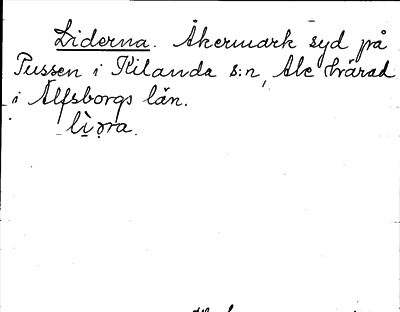 Liderna. Åkermark syd på
Pussen i Kilanda s:n, Ale härad
i Älfsborgs län.